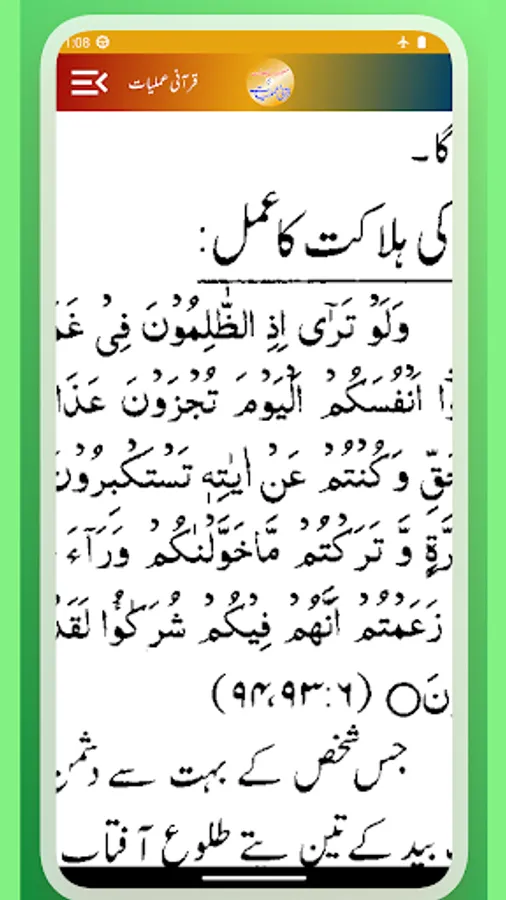 1:08
قرآنی عملیات
گا۔
کی ہلاکت کا عمل:
وَلَوْ تَرٰۤی اِذِ الظّٰلِمُوْنَ فِیْ
اَنْفُسَکُمْ اَلْیَوْمَ تُجْزَوْنَ عَذَا
وَکُنْتُمْ عَنْ اٰیٰتِهٖ تَسْتَکْبِرُوْنَ
وَّ تَرَکْتُمْ مَّاخَوَّلْنٰکُمْ وَرَآءَ
زَعَمْتُمْ اَنَّهُمْ فِیْکُمْ شُرَکٰٓؤُا لَقَدْ
(۶:۹۳،۹۴)
جس شخص کے بہت سے دشمن
بید کے تین پتے طلوع آفتاب